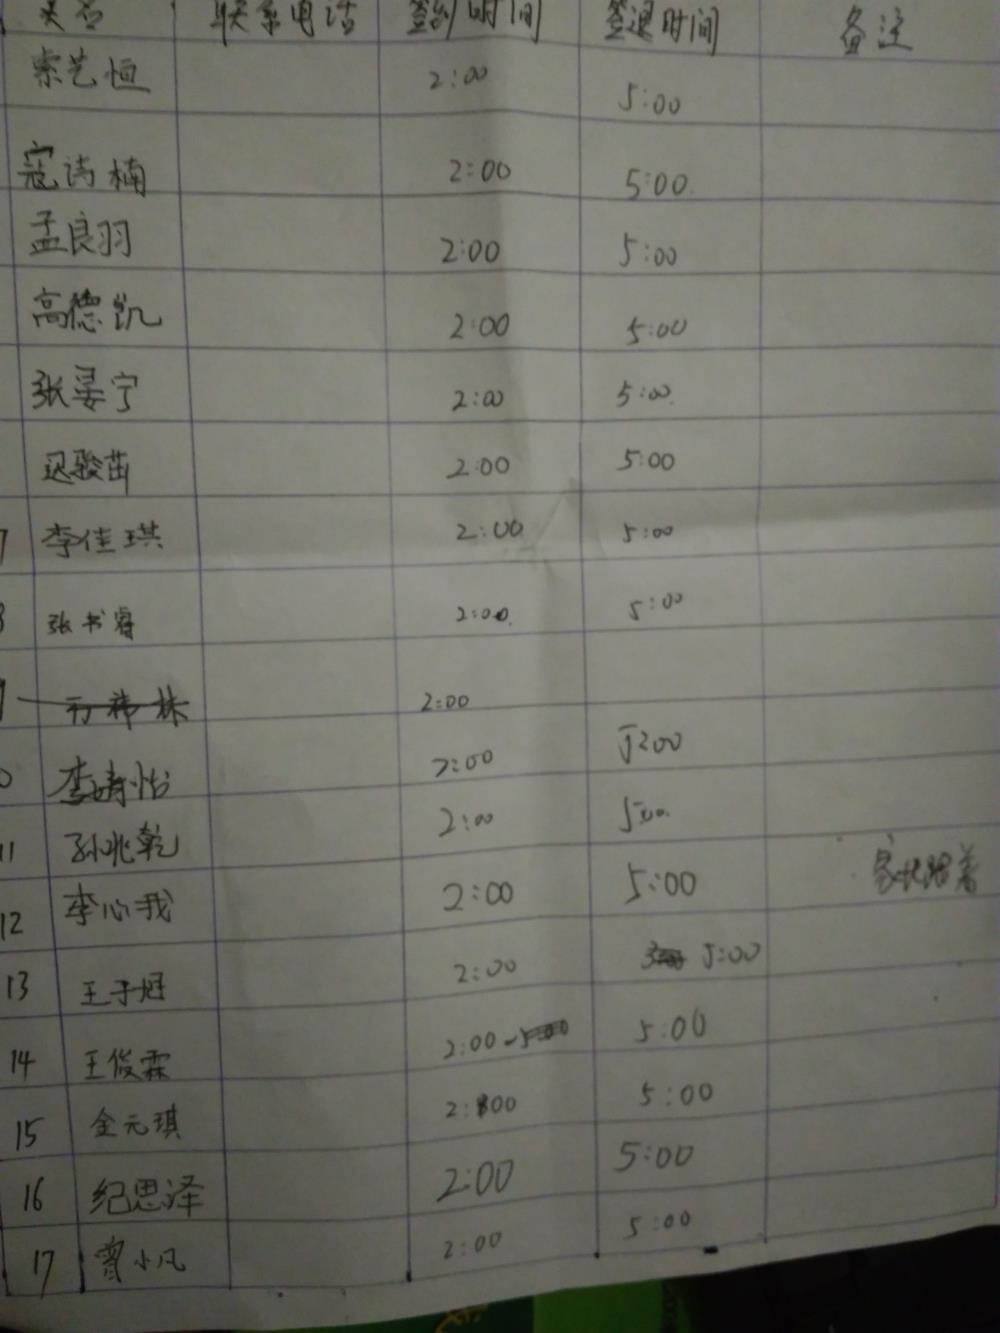 姓名 联系电话 签到时间 签退时间 备注
索艺恒 2:00 5:00
寇诗楠 2:00 5:00
孟良羽 2:00 5:00
高德凯 2:00 5:00
张晏宁 2:00 5:00
迟骏茁 2:00 5:00
7 李佳琪 2:00 5:00
8 张书睿 2:00 5:00
2:00
0 李婧怡 2:00 5:00
11 孙兆乾 2:00 5:00
12 李心我 2:00 5:00 家长跟着
13 王子冠 2:00 5:00
14 王俊霖 2:00 5:00
15 金元琪 2:00 5:00
16 纪思泽 2:00 5:00
17 曾小凡 2:00 5:00